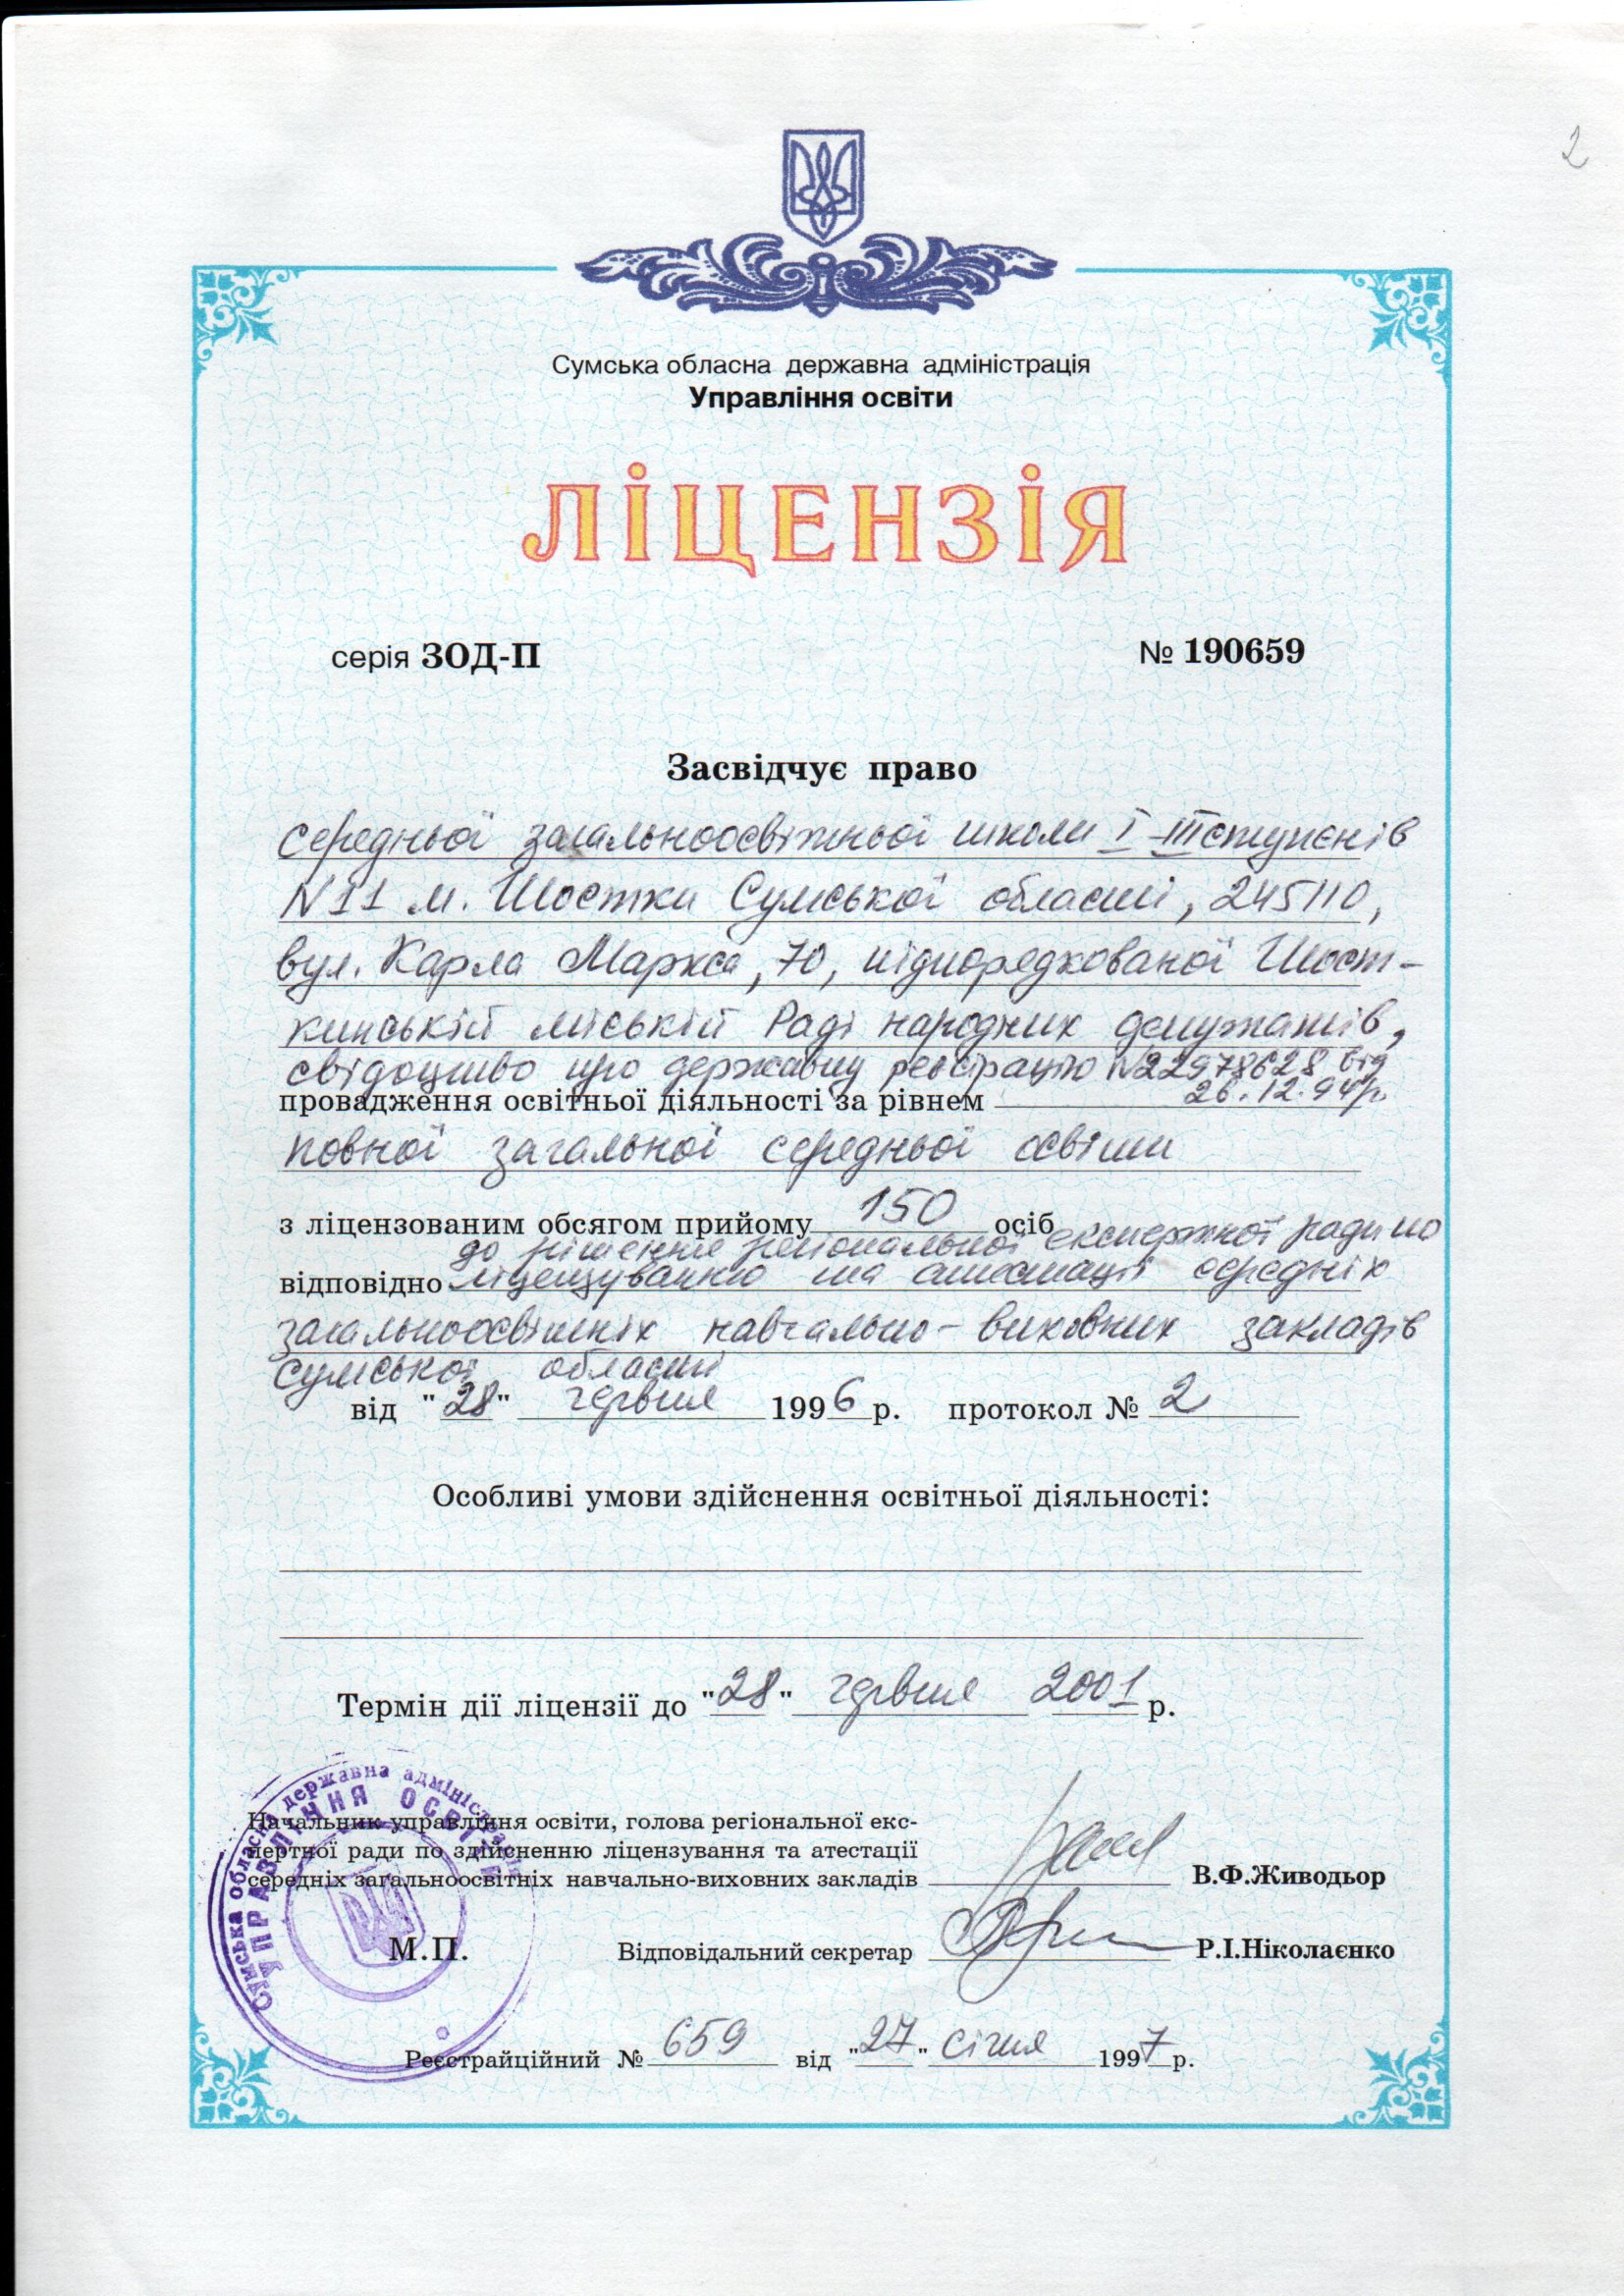 2
Сумська обласна державна адміністрація
Управління освіти
ЛІЦЕНЗІЯ
серія ЗОД-П № 190659
Засвідчує право
середньої загальноосвітньої школи І-ІІІ ступенів
N 11 м. Шостки Сумської області, 245110,
вул. Карла Маркса, 70, підпорядкованої Шост-
кинській міській Раді народних депутатів,
свідоцтво про державну реєстрацію N22978628 від
провадження освітньої діяльності за рівнем 26.12.94р.
повної загальної середньої освіти
з ліцензованим обсягом прийому 150 осіб
до рішення регіональної експертної ради по
відповідно ліцензуванню та атестації середніх
загальноосвітніх навчально-виховних закладів
Сумської області
від "28" червня 1996 р. протокол № 2
Особливі умови здійснення освітньої діяльності:
Термін дії ліцензії до "28" червня 2001 р.
Начальник управління освіти, голова регіональної екс-
пертної ради по здійсненню ліцензування та атестації
середніх загальноосвітніх навчально-виховних закладів В.Ф.Живодьор
М.П. Відповідальний секретар Р.І.Ніколаєнко
Реєстраційний № 659 від "27" січня 1997 р.
Сумська обласна державна адміністрація
УПРАВЛІННЯ ОСВІТИ